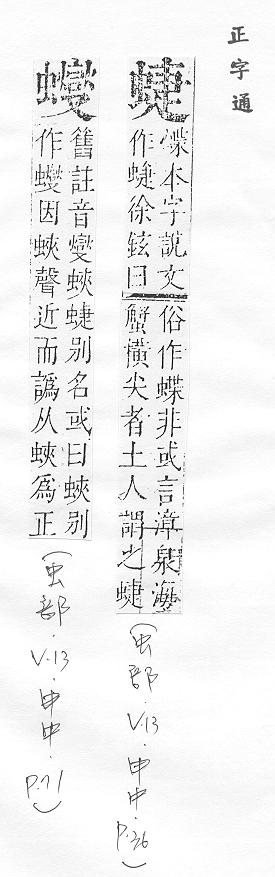 正字通
蜨
蝶本字說文
作蜨徐鉉曰
俗作蝶非或言漳泉海
蟹橫尖者土人謂之蜨
(虫部.V.13.申中.P.36)
舊註音燮蛺蜨別名或曰蛺別
作因蛺聲近而譌从蛺為正
(虫部.V.13.申中.P.71)